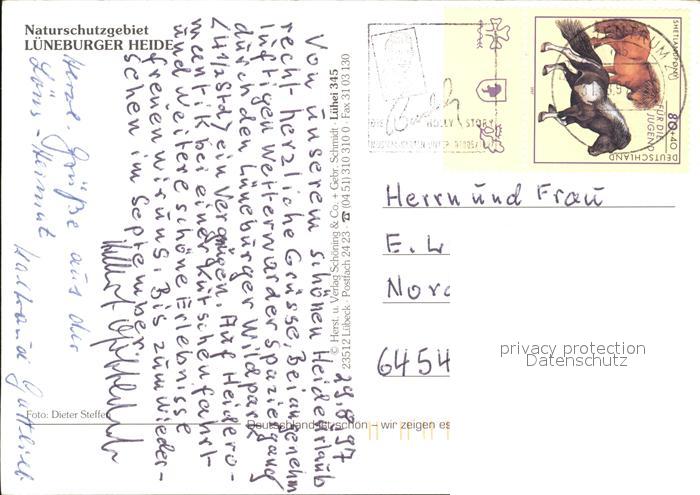 Naturschutzgebiet
LÜNEBURGER HEIDE
29.8.97
Von unserem schönen Heideurlaub
recht herzliche Grüsse. Bei angenehm
luftigen Wetter war der Spaziergang
durch den Lüneburger Wildpark
(4 1/2 Std) ein Vergnügen. Auf Heidero-
mantik bei einer Kutschenfahrt
und weitere schöne Erlebnisse
freuen wir uns. Bis zum Wieder-
sehen im September
Herzl. Grüße aus der
Löns-Heimat
Foto: Dieter Steffen
© Herst. u. Verlag Schöning & Co. + Gebr. Schmidt · Lühei 345
23512 Lübeck · Postfach 24 23 · ☎ (04 51) 310 310 0 · Fax 31 03 130
Deutschland ist schön - wir zeigen es
SHETLANDPONY
80+40
FÜR DIE
JUGEND
DEUTSCHLAND
Herrn und Frau
E. W
Nord
6454
privacy protection
Datenschutz